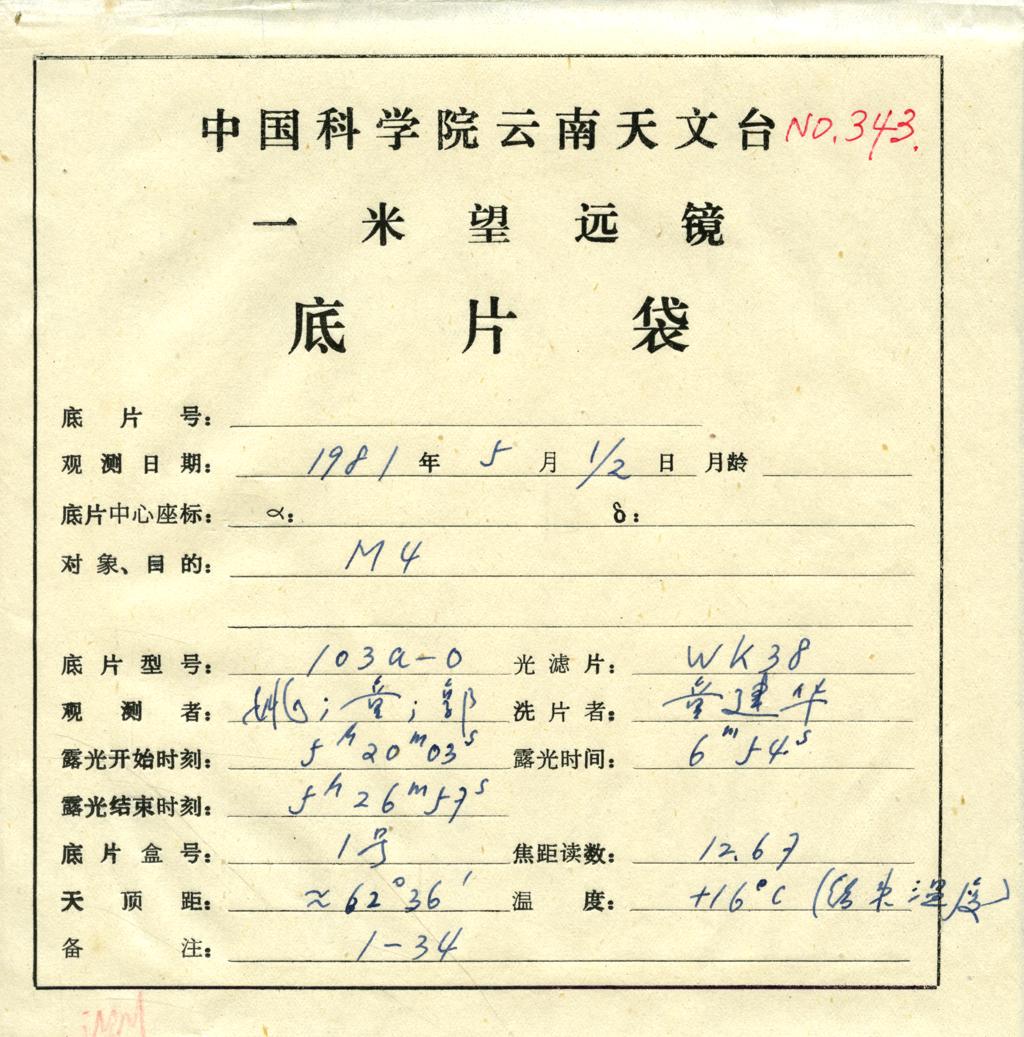 中国科学院云南天文台 NO.343.
一米望远镜
底片袋
底片号：
观测日期： 1981年 5月 1/2日 月龄
底片中心座标： α： δ：
对象、目的： M4
底片型号： 103a-0 光滤片： WK38
观测者： 姚；童；郭 洗片者： 童建华
露光开始时刻： 5h20m03s 露光时间： 6m54s
露光结束时刻： 5h26m57s
底片盒号： 1号 焦距读数： 12.67
天顶距： ≈62°36′ 温度： +16°C (结束温度)
备注： 1-34